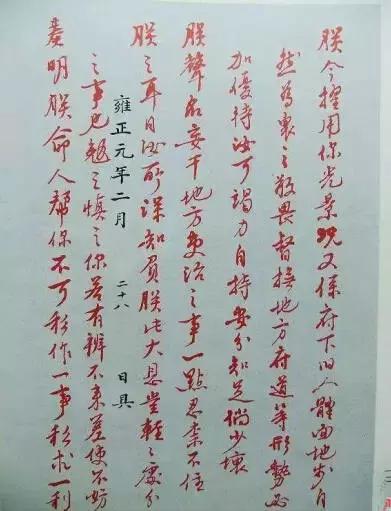 朕今擢用你光景况又係府下旧人體面地步自
然為衆之敬畏督撫地方府道等形勢必
加優待汝可竭力自持安分知足倘少壞
朕聲名妄干地方吏治之事一點忍柰不住
朕之耳目汝所深知負朕此大恩豈輕之處分
雍正元年二月 二十八 日具
之事也勉之慎之你若有辨不来差使不妨
奏明朕命人幫你不可私作一事私求一利